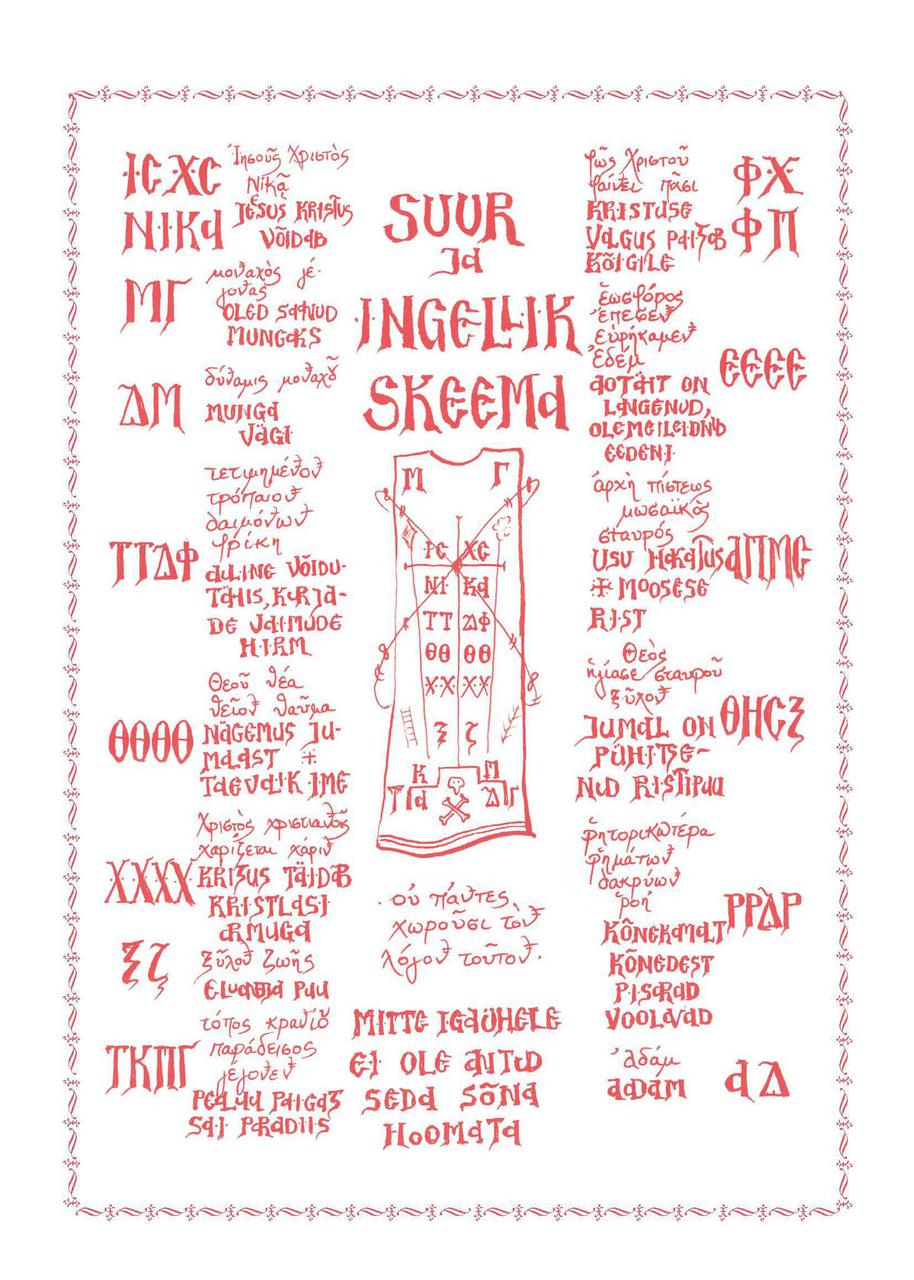 SUUR
JA
INGELLIK
SKEEMA
IC XC
NIKA
Ἰησοῦς Χριστὸς
Νικᾷ
JESUS KRISTUS
VÕIDAB
ΜΓ
μοναχὸς γέ-
γονας
OLED SAANUD
MUNGAKS
ΔΜ
δύναμις μοναχοῦ
MUNGA
VÄGI
ΤΤΔΦ
τετιμημένον
τρόπαιον
δαιμόνων
φρίκη
AULINE VÕIDU-
TÄHIS, KURJA-
DE VAIMUDE
HIRM
ΘΘΘΘ
Θεοῦ θέα
θεῖον θαῦμα
NÄGEMUS JU-
MALAST +
TAEVALIK IME
ΧΧΧΧ
Χριστὸς χριστιανοῖς
χαρίζεται χάριν
KRISTUS TÄIDAB
KRISTLASI
ARMUGA
ξζ
ξῦλον ζωῆς
ELUANDIA PUU
ΤΚΠΓ
τόπος κρανίου
παράδεισος
γέγονεν
PEALUU PAIGAST
SAI PARADIIS
Μ Γ
IC XC
NI KA
ΤΤ ΔΦ
ΘΘ ΘΘ
ΧΧ ΧΧ
ξ ζ
Κ Π
ΤΓΑ ΔΓ
οὐ πάντες
χωροῦσι τὸν
λόγον τοῦτον.
MITTE IGAÜHELE
EI OLE ANTUD
SEDA SÕNA
HOOMATA
φῶς Χριστοῦ
φαίνει πᾶσι
KRISTUSE
VALGUS PAISTAB
KÕIGILE
ΦΧ
ΦΠ
ἑωσφόρος
ἔπεσεν
εὑρήκαμεν
Ἐδέμ
AOTÄHT ON
LANGENUD,
OLEME LEIDNUD
EEDENI
ЄЄЄЄ
ἀρχὴ πίστεως
μωσαϊκὸς
σταυρός
USU HAKATUS
+ MOOSESE
RIST
ΑΠΜС
Θεὸς
ἡγίασε σταυροῦ
ξῦλον
JUMAL ON
PÜHITSE-
NUD RISTIPUU
ΘΗСξ
ῥητορικωτέρα
ῥημάτων
δακρύων
ῥοή
KÕNEKAMALT
KÕNEDEST
PISARAD
VOOLAVAD
ΡΡΔΡ
Ἀδάμ
AADAM
ΑΔ